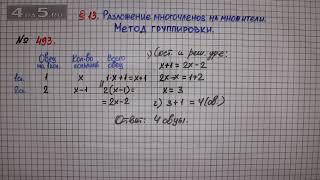 4 5
§ 13. Разложение многочленов на множители.
Метод группировки.
№ 493.
Овец на 1 кол. Кол-во кольышк. Всего овец
1сл. 1 x 1·x+1=x+1
2сл. 2 x-1 2(x-1)=
=2x-2
1) Сост. и реш. ур-е:
x+1=2x-2
2x-x=1+2
x=3
2) 3+1=4(ов.)
Ответ: 4 овцы.